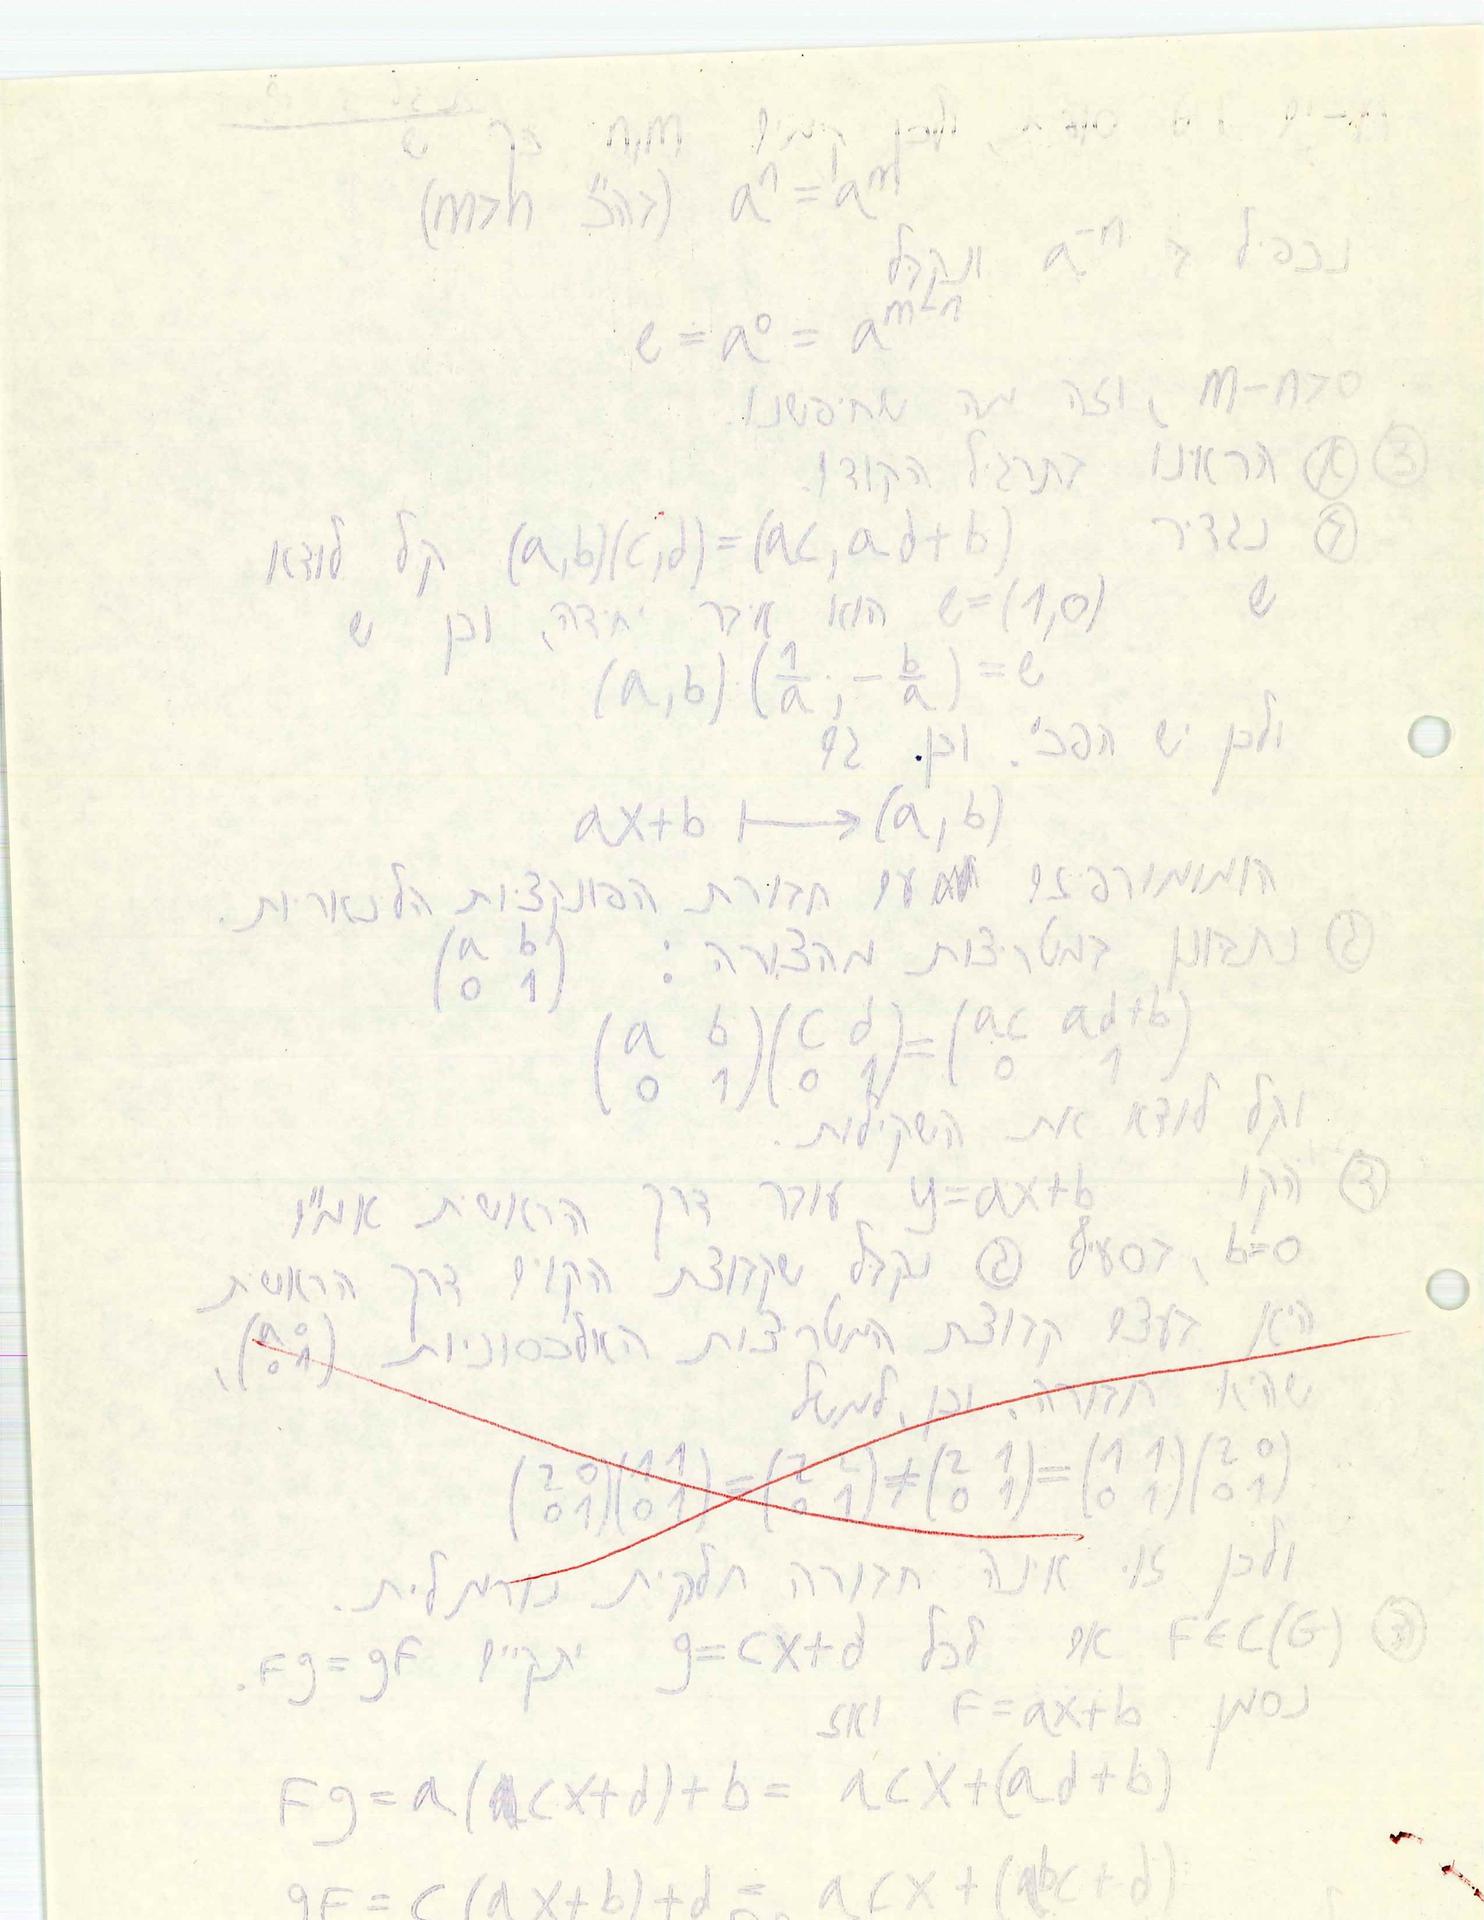 סופית, ולכן קיימים n,m כך ש
aⁿ = aᵐ (בה"כ m>n)
נכפיל ב a⁻ⁿ ונקבל
e = a⁰ = aᵐ⁻ⁿ
m-n>0, וזה מה שחיפשנו.
③ א הראינו בתרגיל הקודם.
ב נגדיר (a,b)(c,d)=(ac,ad+b) קל לודא
ש e=(1,0) הוא איבר יחידה, וכן ש
(a,b)(1/a, -b/a)=e
ולכן יש הפכי. וכן גם
ax+b ↦ (a,b)
הומומורפיזם עם חבורת הפונקציות הלינאריות.
ג נתבונן במטריצות מהצורה: (a b; 0 1)
(a b; 0 1)(c d; 0 1)=(ac ad+b; 0 1)
וקל לודא את השקילות.
ד הקו y=ax+b עובר דרך הראשית אמ"ם
b=0, בסעיף ג נקבל שקבוצת הקוים דרך הראשית
היא בעצם קבוצת המטריצות האלכסוניות (a 0; 0 1),
שהיא חבורה, וכן, למשל
(2 0; 0 1)(1 1; 0 1)=(2 2; 0 1)≠(2 1; 0 1)=(1 1; 0 1)(2 0; 0 1)
ולכן זוי אינה חבורה חלקית נורמלית.
ה F∈C(G) אם לכל g=cx+d יתקיים Fg=gF.
נסמן F=ax+b ואז
Fg=a(cx+d)+b= acx+(ad+b)
gF=c(ax+b)+d= acx+(bc+d)